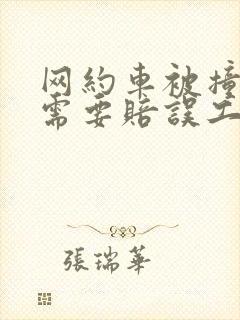 网約車被撞
需要賠誤工
張瑞華